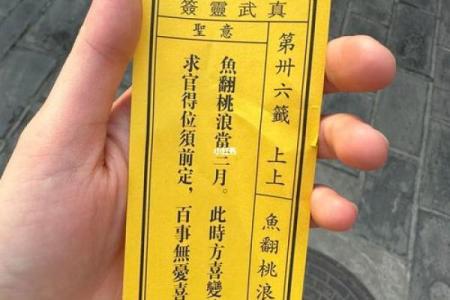 真武靈簽
第卅六籤 上上
魚翻桃浪
聖意
魚翻桃浪當三月。此時方喜變
求官得位須前定，百事無憂喜
小红书